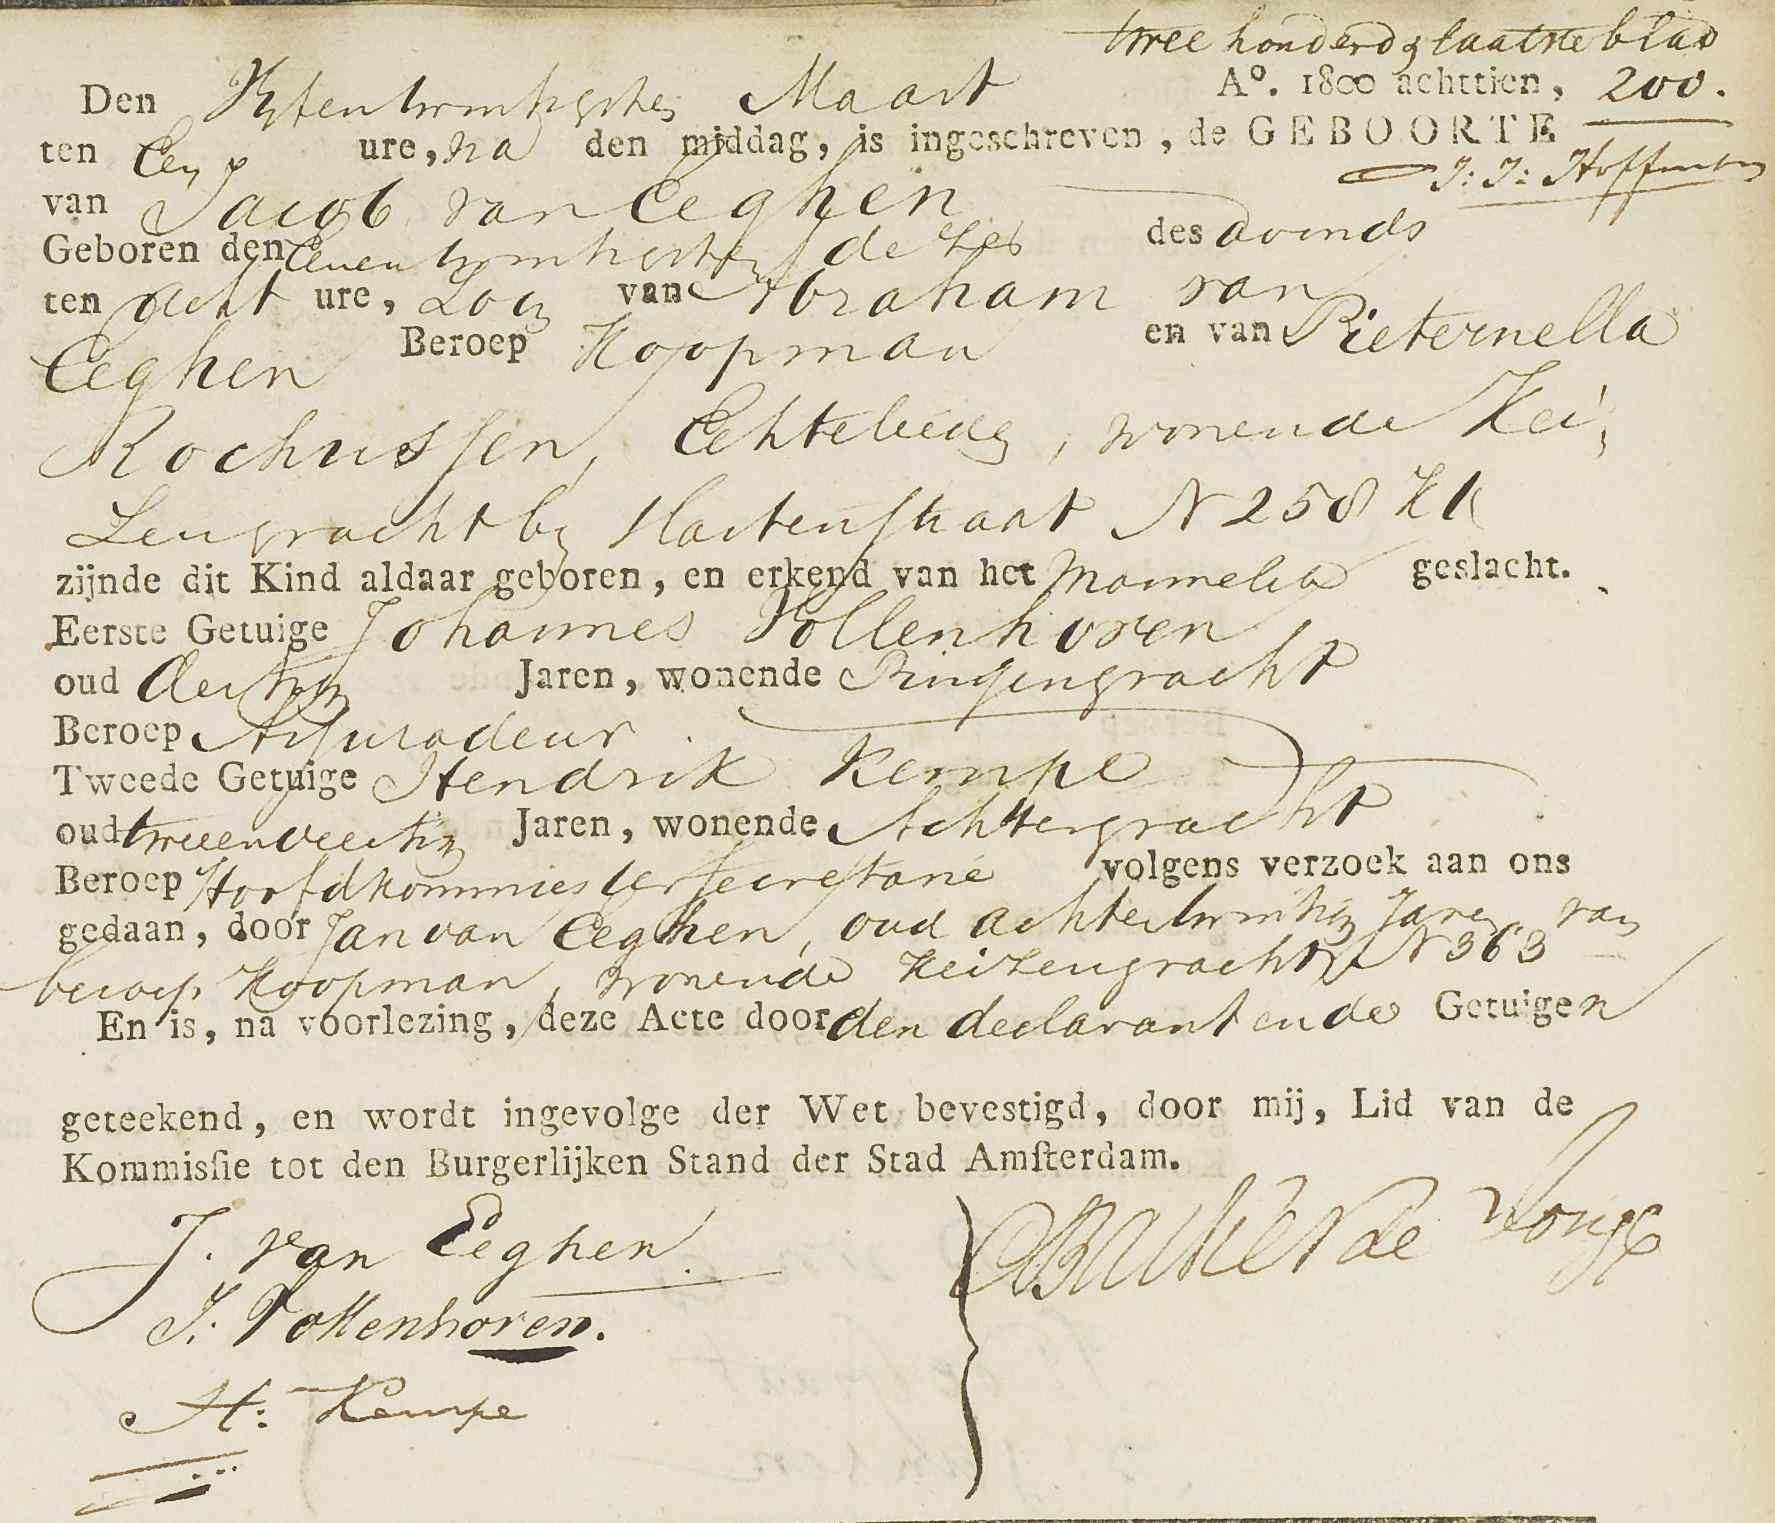 twee honderdste laatste blad
Den Vyfentwintigsten Maart A°. 1800 achttien, 200.
ten Een ure, na den middag, is ingeschreven, de GEBOORTE
J: J: Hoffman
van Jacob van Eeghen
Geboren den Eenentwintigsten dezes des avonds
ten acht ure, Zoon van Abraham van
Eeghen Beroep Koopman en van Pieternella
Rochussen, Echtelieden, wonende Kei,
zengracht by Hartenstraat N 258 KK
zijnde dit Kind aldaar geboren, en erkend van het Mannelyk geslacht.
Eerste Getuige Johannes Vollenhoven
oud dertig Jaren, wonende Prinsengracht
Beroep Assuradeur
Tweede Getuige Hendrik Kempe
oud tweeenveertig Jaren, wonende Achtergracht
Beroep Hoofdkommies ter Secretarie volgens verzoek aan ons
gedaan, door Jan van Eeghen, oud achtentwintig Jaren van
beroep Koopman, wonende Keizengracht N 363
En is, na voorlezing, deze Acte door den declarant en de Getuigen
geteekend, en wordt ingevolge der Wet bevestigd, door mij, Lid van de
Kommisſie tot den Burgerlijken Stand der Stad Amſterdam.
J. van Eeghen.
J: Vollenhoven.
H: Kempe